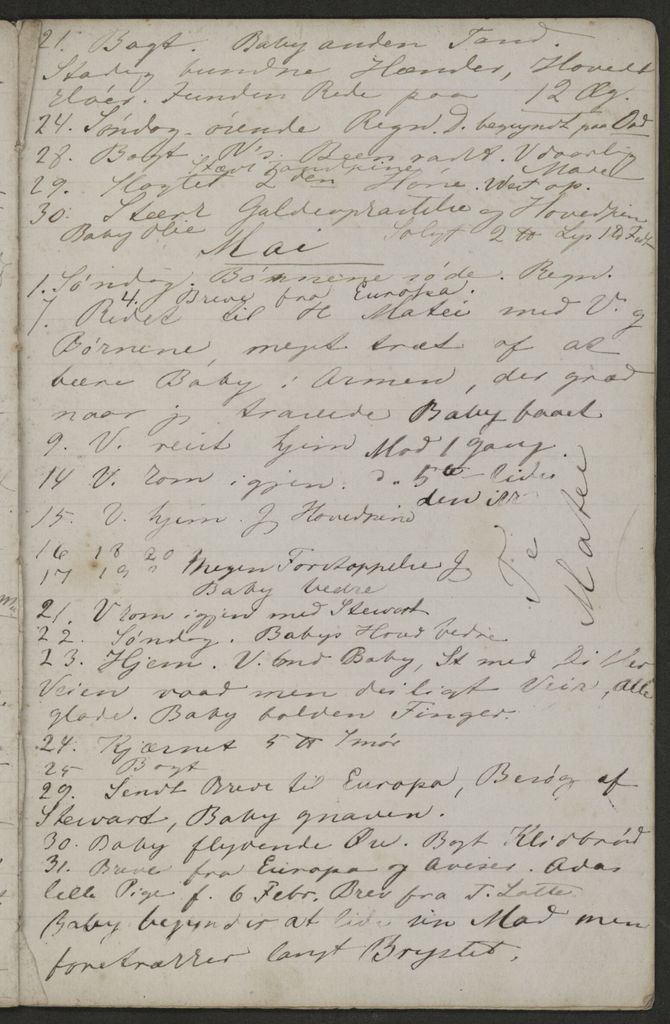 21. Bagt. Baby anden Tand.
Stadig bundne Hænder, Hovedt
Funden Rede paa 12 Æg.
24. Søndag - øsende Regn. D. begyndt paa
28. Bagt V's Been vadt. V daarlig
Stærk Tandpine Mave
29. Slagtet 2 den Høne. West op.
30. Stærk Galdeopkastelse og Hovedpine
Baby Olie Solgt 2 ℔ Lys 1
Mai
1. Søndag. Børnene søde. Regn.
4. Breve fra Europa.
7. Redet til H Matei med V. og
Børnene, meget træt af at
bære Baby i Armen, der græd
naar jg travede Baby baaet
9. V. reist hjem Mad 1 gang.
14 V. kom igjen. D. 5te
den
15. V. hjem. Jg Hovedpine
Te Matei
16 18 20
17 19 " Megen Forstoppelse Jg
Baby bedre
21. V kom igjen med Stewart
22. Søndag. Babys Hoved bedre
23. Hjem. V. Baby, St med Di
Veien vaad men deiligt Veir, alle
glade. Baby bolden Finger.
24. Kjærnet 5 ℔ Smør
25 Bagt
29. Sendt Breve til Europa, Besøg af
Stewart, Baby gnaven.
30. Baby flyvende Øre. Bagt Klidbrød
31. Breve fra Europa og Aviser. Adas
lille Pige f. 6 Febr. Brev fra T. Lotte
Baby begynder at lide sin Mad men
foretrækker langt Brystet.